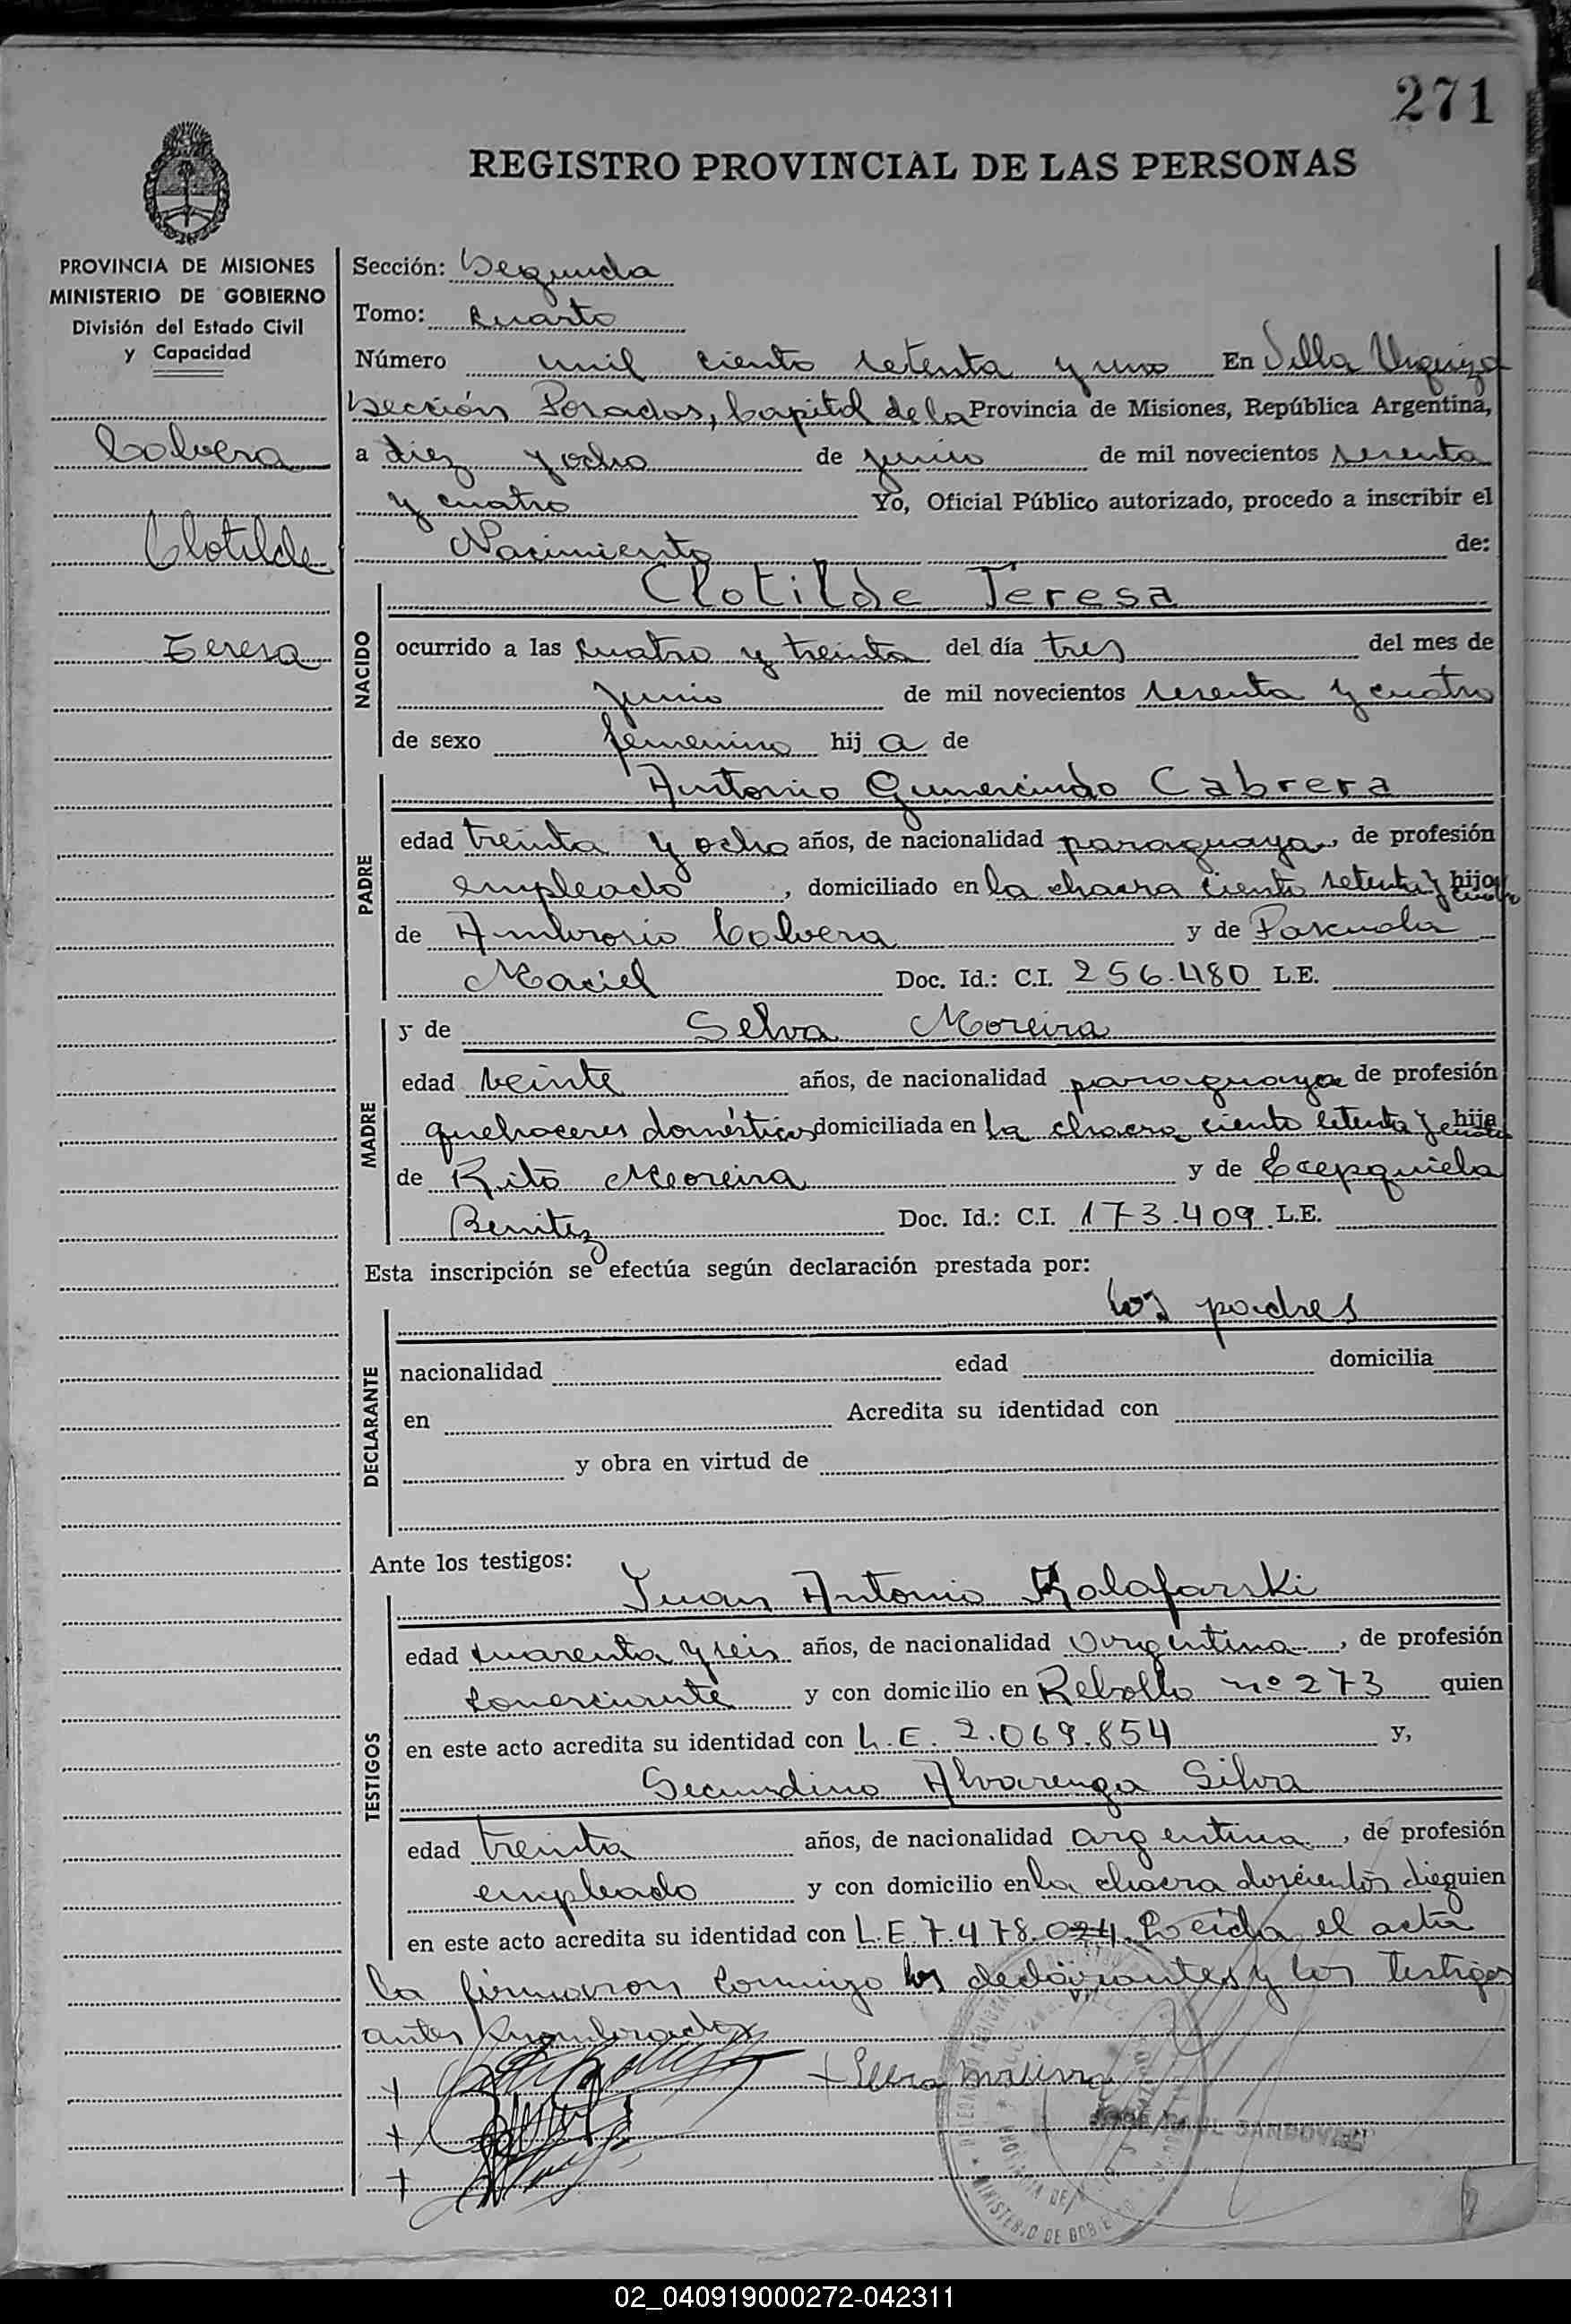 271
REGISTRO PROVINCIAL DE LAS PERSONAS
PROVINCIA DE MISIONES
MINISTERIO DE GOBIERNO
División del Estado Civil
y Capacidad
Cabrera
Clotilde
Teresa
Sección: Segunda
Tomo: Cuarto
Número mil ciento setenta y uno En Villa Urquiza
Sección Posadas, Capital de la Provincia de Misiones, República Argentina,
a diez y ocho de junio de mil novecientos sesenta
y cuatro Yo, Oficial Público autorizado, procedo a inscribir el
Nacimiento de:
NACIDO
Clotilde Teresa
ocurrido a las cuatro y treinta del día tres del mes de
junio de mil novecientos sesenta y cuatro
de sexo femenino hij a de
PADRE
Antonio Gumercindo Cabrera
edad treinta y ocho años, de nacionalidad paraguaya, de profesión
empleado, domiciliado en la chacra ciento setenta y cuatro hijo
de Ambrosio Cabrera y de Pascuala
Maciel Doc. Id.: C.I. 256.480 L.E.
MADRE
y de Selva Moreira
edad veinte años, de nacionalidad paraguaya de profesión
quehaceres domésticos domiciliada en la chacra ciento setenta y cuatro hija
de Rito Moreira y de Ecepquiela
Benitez Doc. Id.: C.I. 173.409 L.E.
Esta inscripción se efectúa según declaración prestada por:
DECLARANTE
los padres
nacionalidad edad domicilia
en Acredita su identidad con
y obra en virtud de
Ante los testigos:
TESTIGOS
Juan Antonio Kalafarski
edad cuarenta y seis años, de nacionalidad argentina, de profesión
comerciante y con domicilio en Rebollo nº 273 quien
en este acto acredita su identidad con L.E. 2.069.854 y,
Secundino Alvarenga Silva
edad treinta años, de nacionalidad argentina, de profesión
empleado y con domicilio en la chacra doscientos diez quien
en este acto acredita su identidad con L.E. 7.478.024. Leída el acta
la firmaron conmigo los declarantes y los testigos
antes nombrados
MINISTERIO DE GOBIERNO
02_040919000272-042311